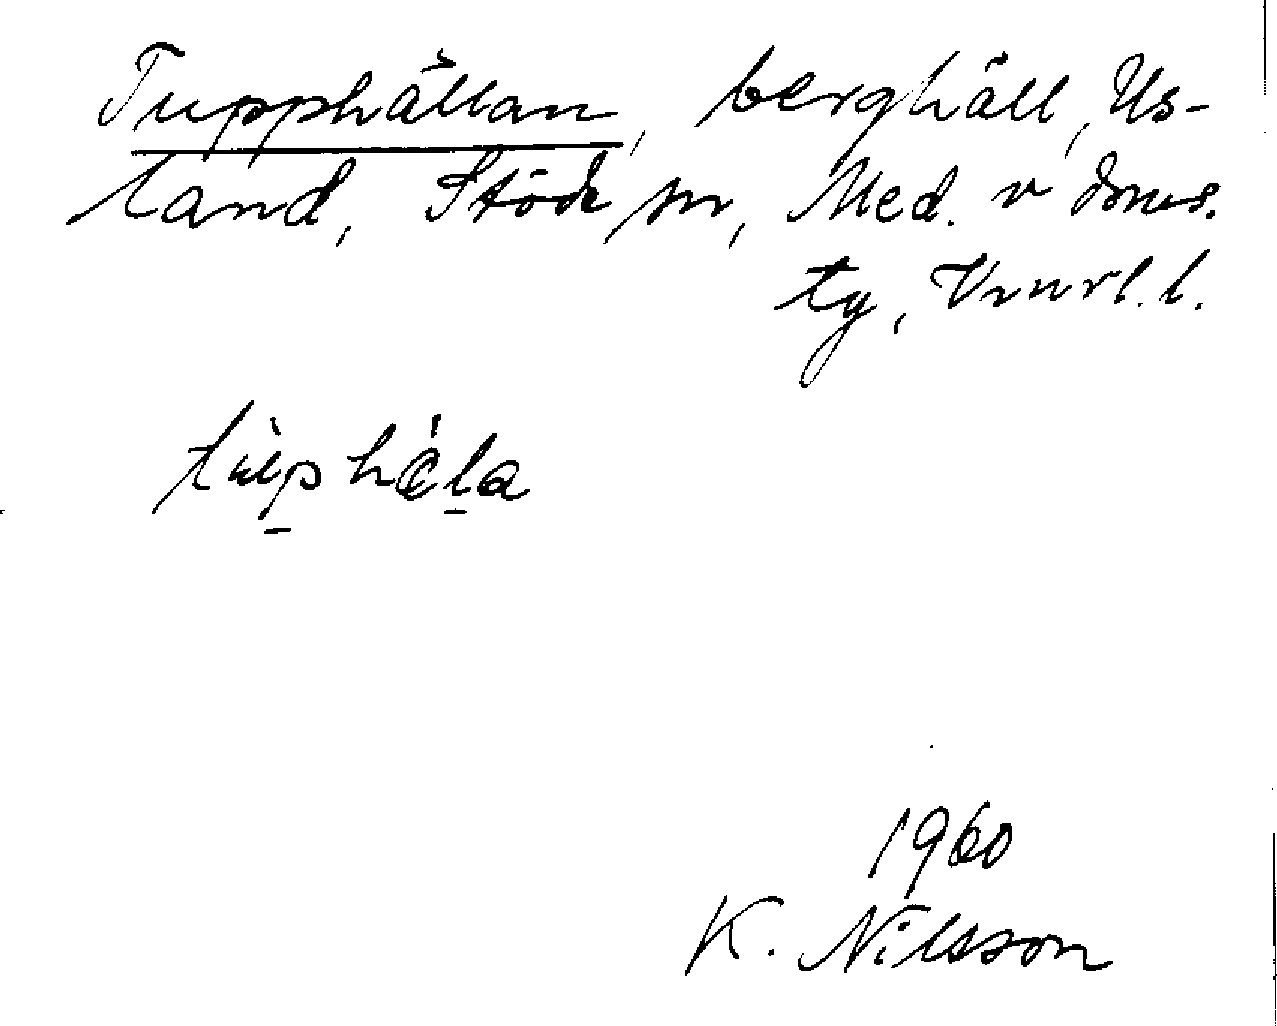 Tupphällan, berghäll, Us-
land, Stöde sn, Med. v doms.
tg, Vnrl. l.
tùp hǽla
1960
K. Nilsson